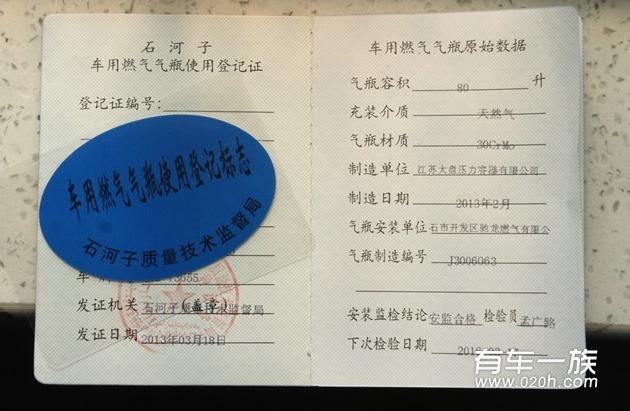 石河子
车用燃气气瓶使用登记证
登记证编号:
车用燃气气瓶使用登记标志
石河子质量技术监督局
发证机关 石河子 技术监督局
(盖章)
发证日期 2013年03月18日
车用燃气气瓶原始数据
气瓶容积 80 升
充装介质 天然气
气瓶材质 30CrMo
制造单位 江苏大盘压力容器有限公司
制造日期 2013年2月
气瓶安装单位 石市开发区驰龙燃气有限公
气瓶制造编号 J3006063
安装监检结论 安监合格 检验员 孟广路
下次检验日期
有车一族
www.020h.com